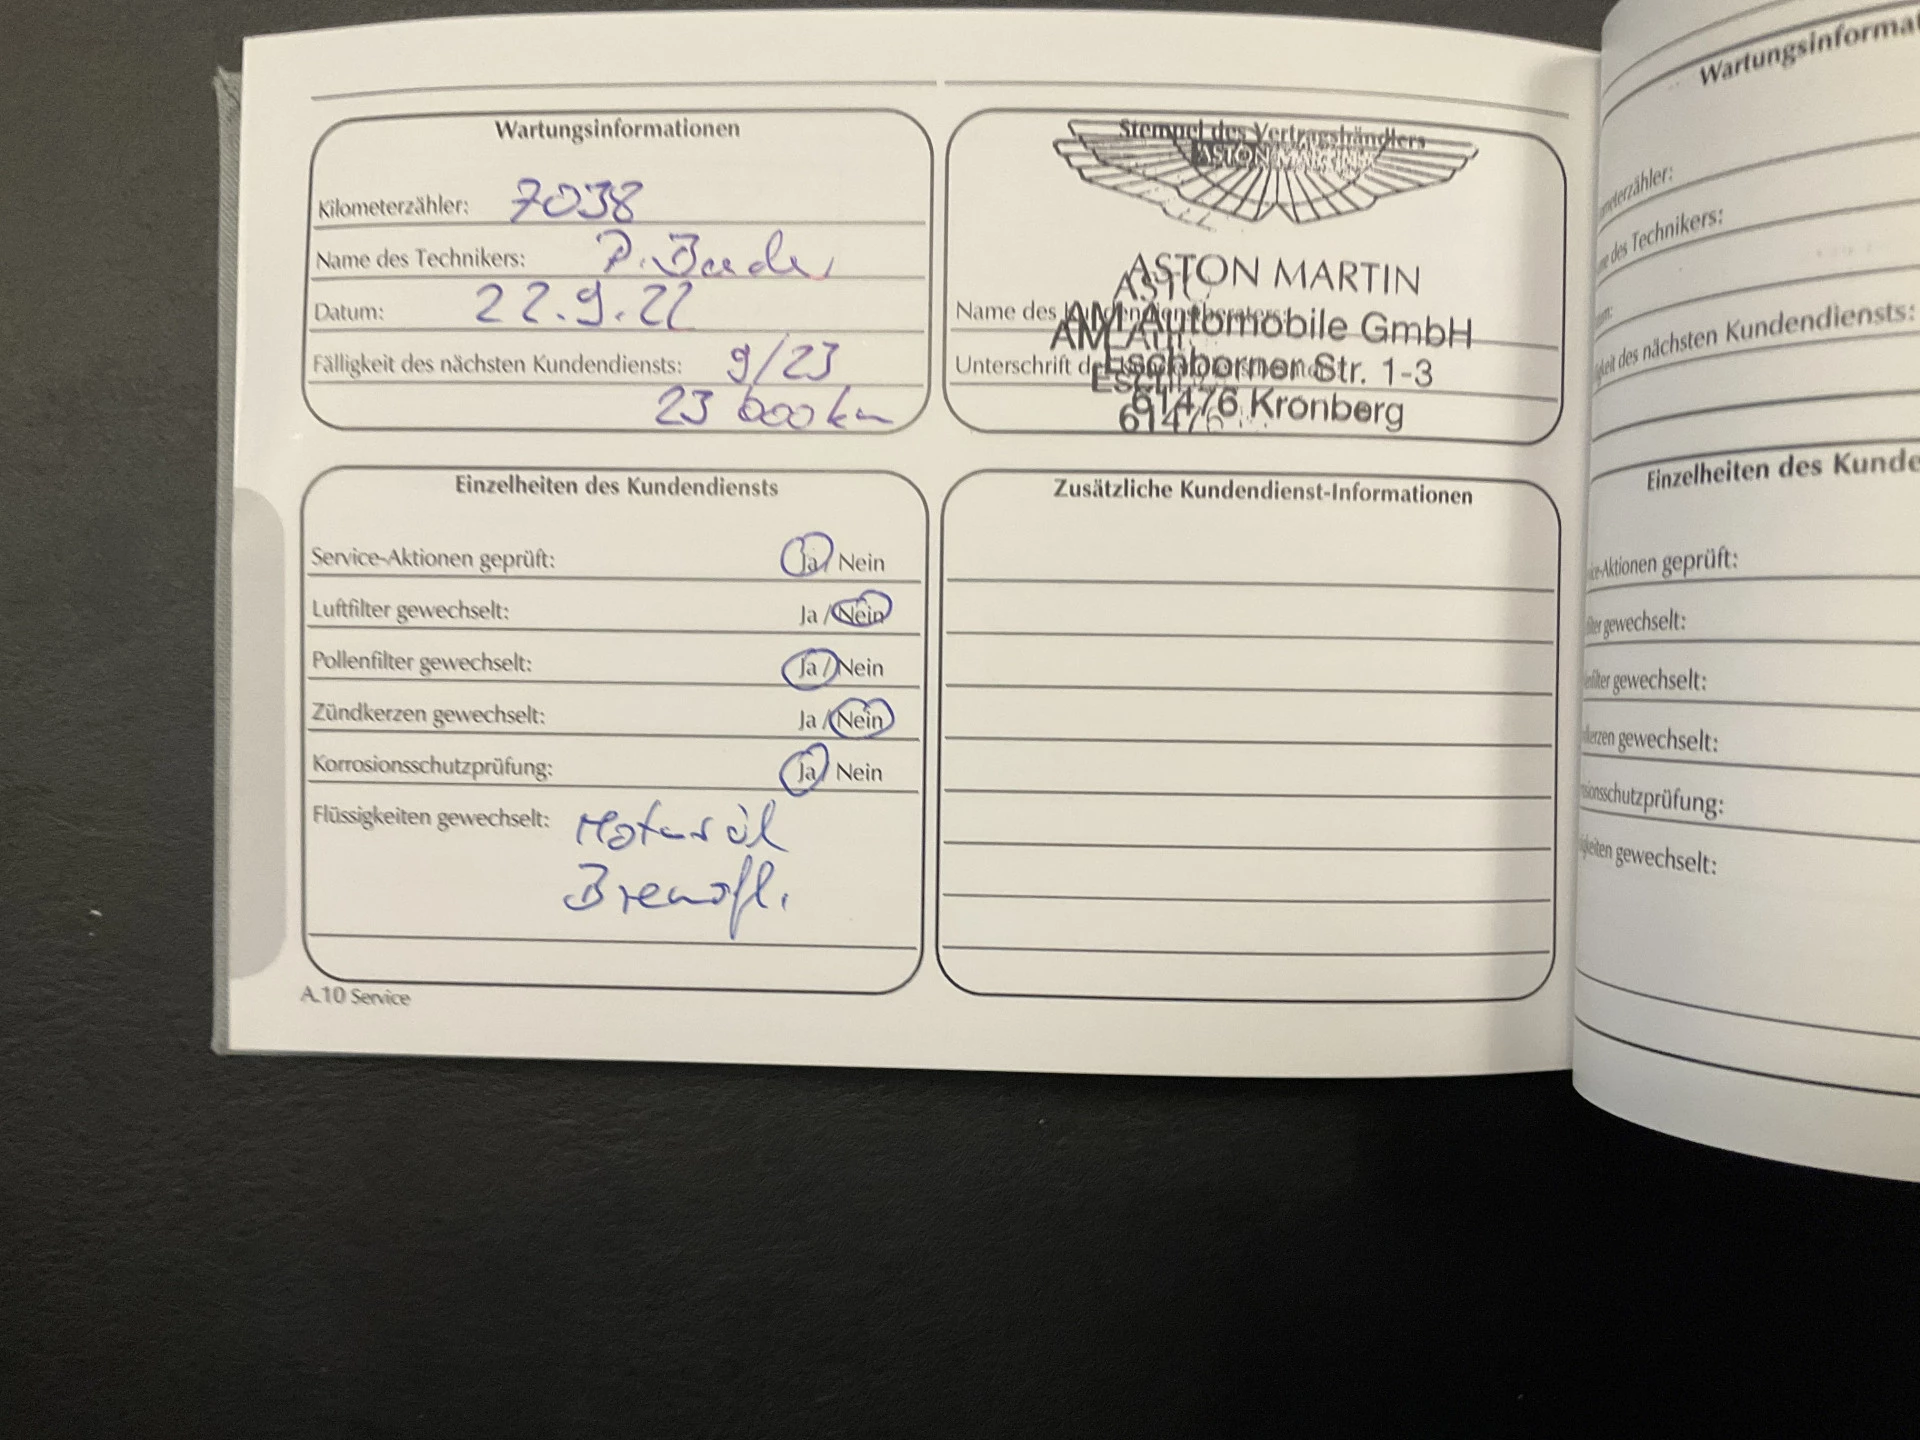 Wartungsinformationen
Kilometerzähler: 7038
Name des Technikers: P. Bader
Datum: 22.9.22
Fälligkeit des nächsten Kundendiensts: 9/23
23 000 km
Stempel des Vertragshändlers
ASTON MARTIN
ASTON MARTIN
Name des
AM Automobile GmbH
Unterschrift
Eschborner Str. 1-3
61476 Kronberg
Einzelheiten des Kundendiensts
Service-Aktionen geprüft: Ja / Nein
Luftfilter gewechselt: Ja / Nein
Pollenfilter gewechselt: Ja / Nein
Zündkerzen gewechselt: Ja / Nein
Korrosionsschutzprüfung: Ja / Nein
Flüssigkeiten gewechselt: Motoröl
Bremsfl.
Zusätzliche Kundendienst-Informationen
A.10 Service
Wartungsinforma
meterzähler:
des Technikers:
nächsten Kundendiensts:
Einzelheiten des Kunde
-Aktionen geprüft:
gewechselt:
gewechselt:
gewechselt:
schutzprüfung:
gewechselt: